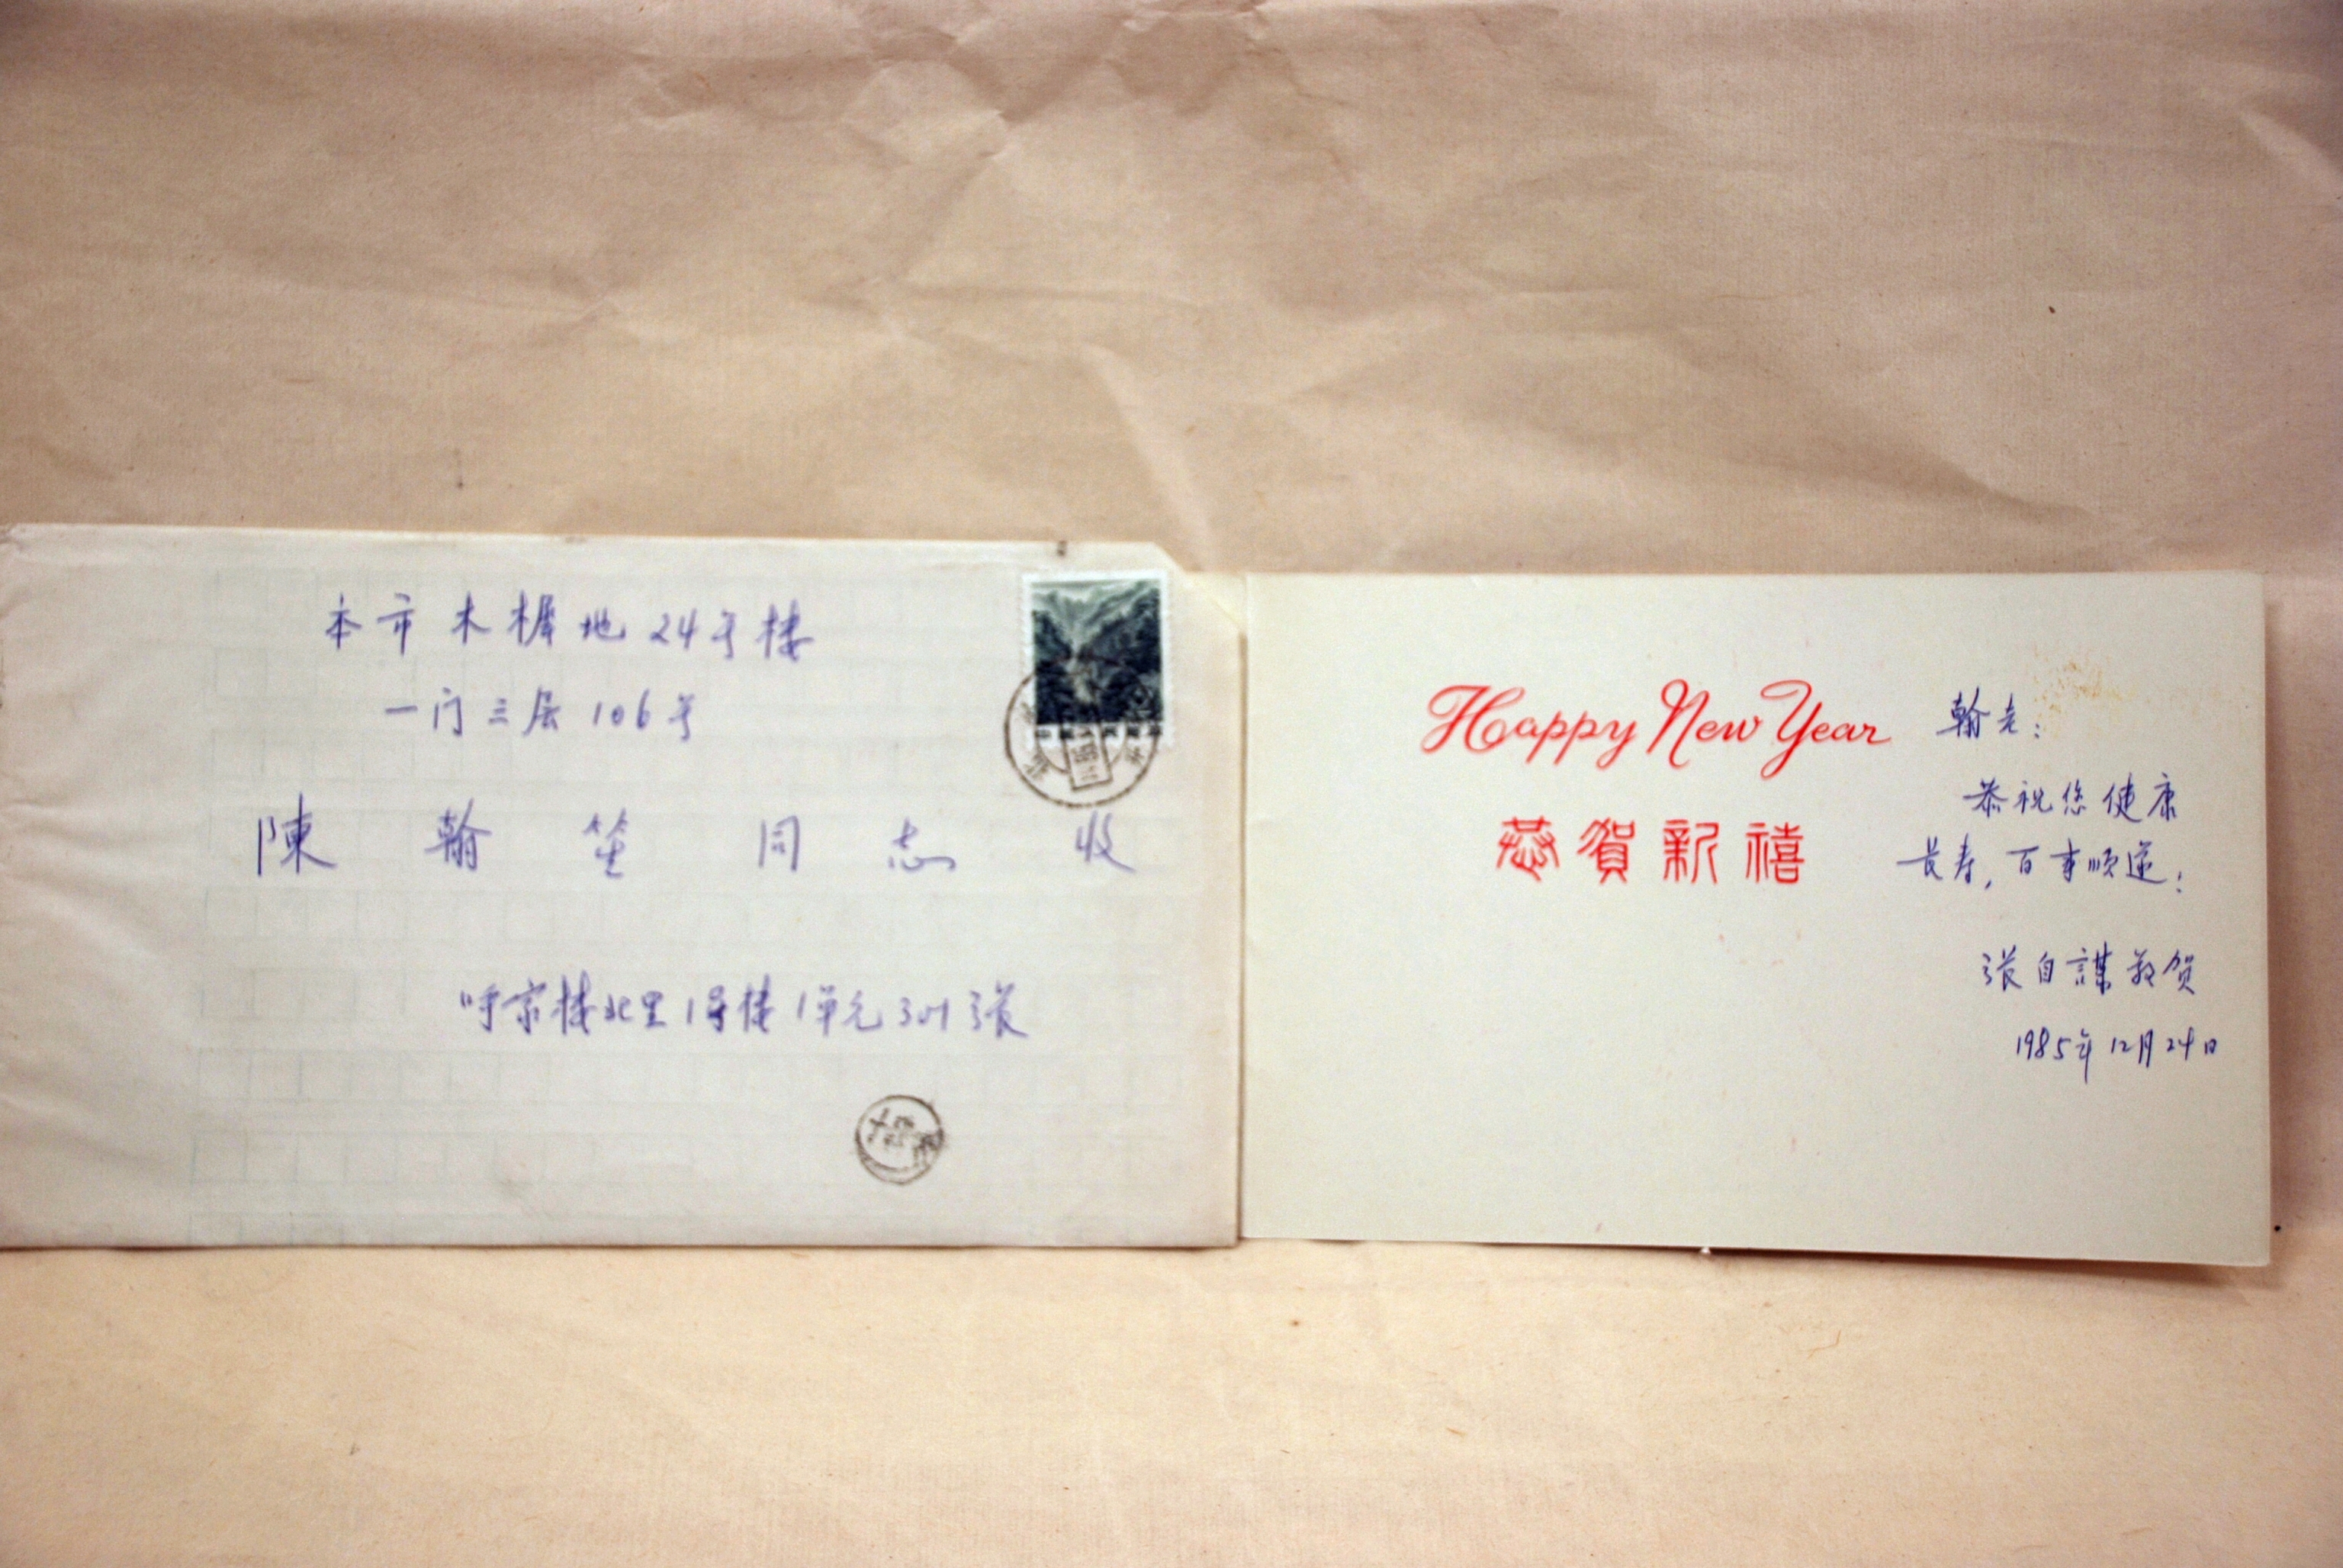 本市木樨地24号楼
一门三层106号
陳翰笙 同志 收
呼家楼北里1号楼1单元301张
Happy New Year
恭賀新禧
翰老:
恭祝您健康
長寿，百事顺遂!
張自謀敬贺
1985年12月24日